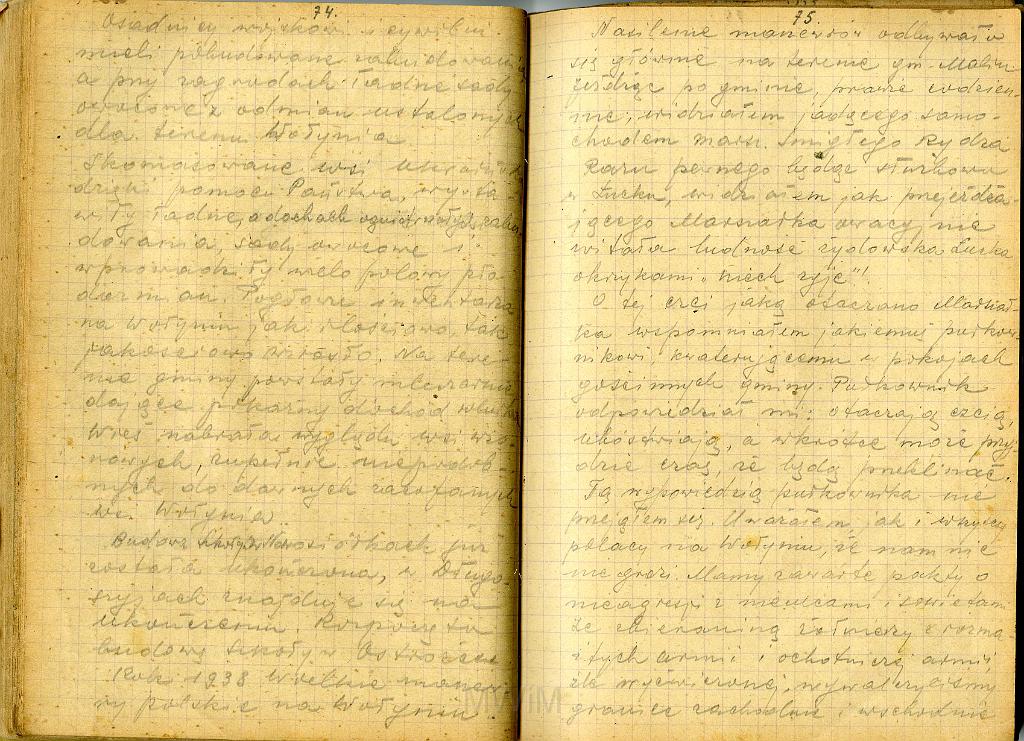 74.
Osadnicy wojskowi i cywilni
mieli pobudowane zabudowania
a przy zagrodach ładne sady
owocowe z odmian ustalonych
dla terenu Wołynia.
Skomasowane wsi ukraińskie
dzięki pomocy Państwa, wysta-
wiły ładne, o dachach ogniotrwałych zabu-
dowania, sady owocowe i
wprowadziły wielopolowy pło-
dozmian. Pogłowie inwentarza
na Wołyniu jak ilościowo tak
jakościowo wzrosło. Na tere-
nie gminy powstały mleczarnie
dające pokaźny dochód
Wieś nabrała wyglądu wsi wzo-
rowych, zupełnie niepodob-
nych do dawnych zacofanych
wsi Wołynia.
Budowa Szkoły w Nowosiółkach już
została ukończona, w Długo-
szyjach znajduje się na
ukończeniu. Rozpoczęta
budowa szkoły w Ostrożcu
Rok 1938 Wielkie manew-
ry polskie na Wołyniu.
75.
Nasilenie manewrów odbywało
się głównie na terenie gm. Malin
Jeżdżąc po gminie, prawie codzien-
nie, widziałem jadącego samo-
chodem marsz. Śmigłego Rydza
Razu pewnego będąc służbowo
w Łucku, widziałem jak przejeżdża-
jącego Marszałka owacyjnie
witała ludność żydowska Łucka
okrzykami "niech żyje"!
O tej czci jaką otaczano Marszał-
ka wspomniałem jakiemuś pułkow-
nikowi, kwaterującemu w pokojach
gościnnych gminy. Pułkownik
odpowiedział mi: otaczają czcią,
ubóstwiają, a wkrótce może przyj-
dzie czas, że będą przeklinać.
Tą wypowiedzią pułkownika nie
przejąłem się. Uważałem jak i wszyscy
polacy na Wołyniu, że nam nic
nie grozi. Mamy zawarte pakty o
nieagresji z niemcami i sowietami
że zbieraniną żołnierzy z rozma-
itych armii i ochotniczej armii
źle wyćwiczonej, wywalczyliśmy
granice zachodnie i wschodnie
MWiM